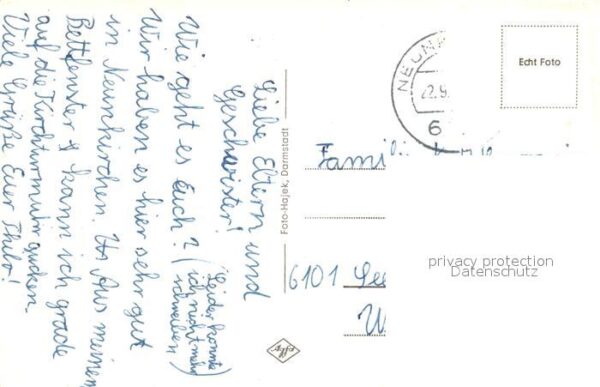 Liebe Eltern und
Geschwister!
Wie geht es Euch? (Leider konnte
ich nicht mehr
schreiben)
Wir haben es hier sehr gut
in Neunkirchen. Aus meinem
Bettfenster kann ich grade
auf die Kirchturmuhr gucken.
Viele Grüße Euer Thilo!
Foto-Hajek, Darmstadt
Echt Foto
NEUN
22.9.
6
Famili
6101 See
W
privacy protection
Datenschutz